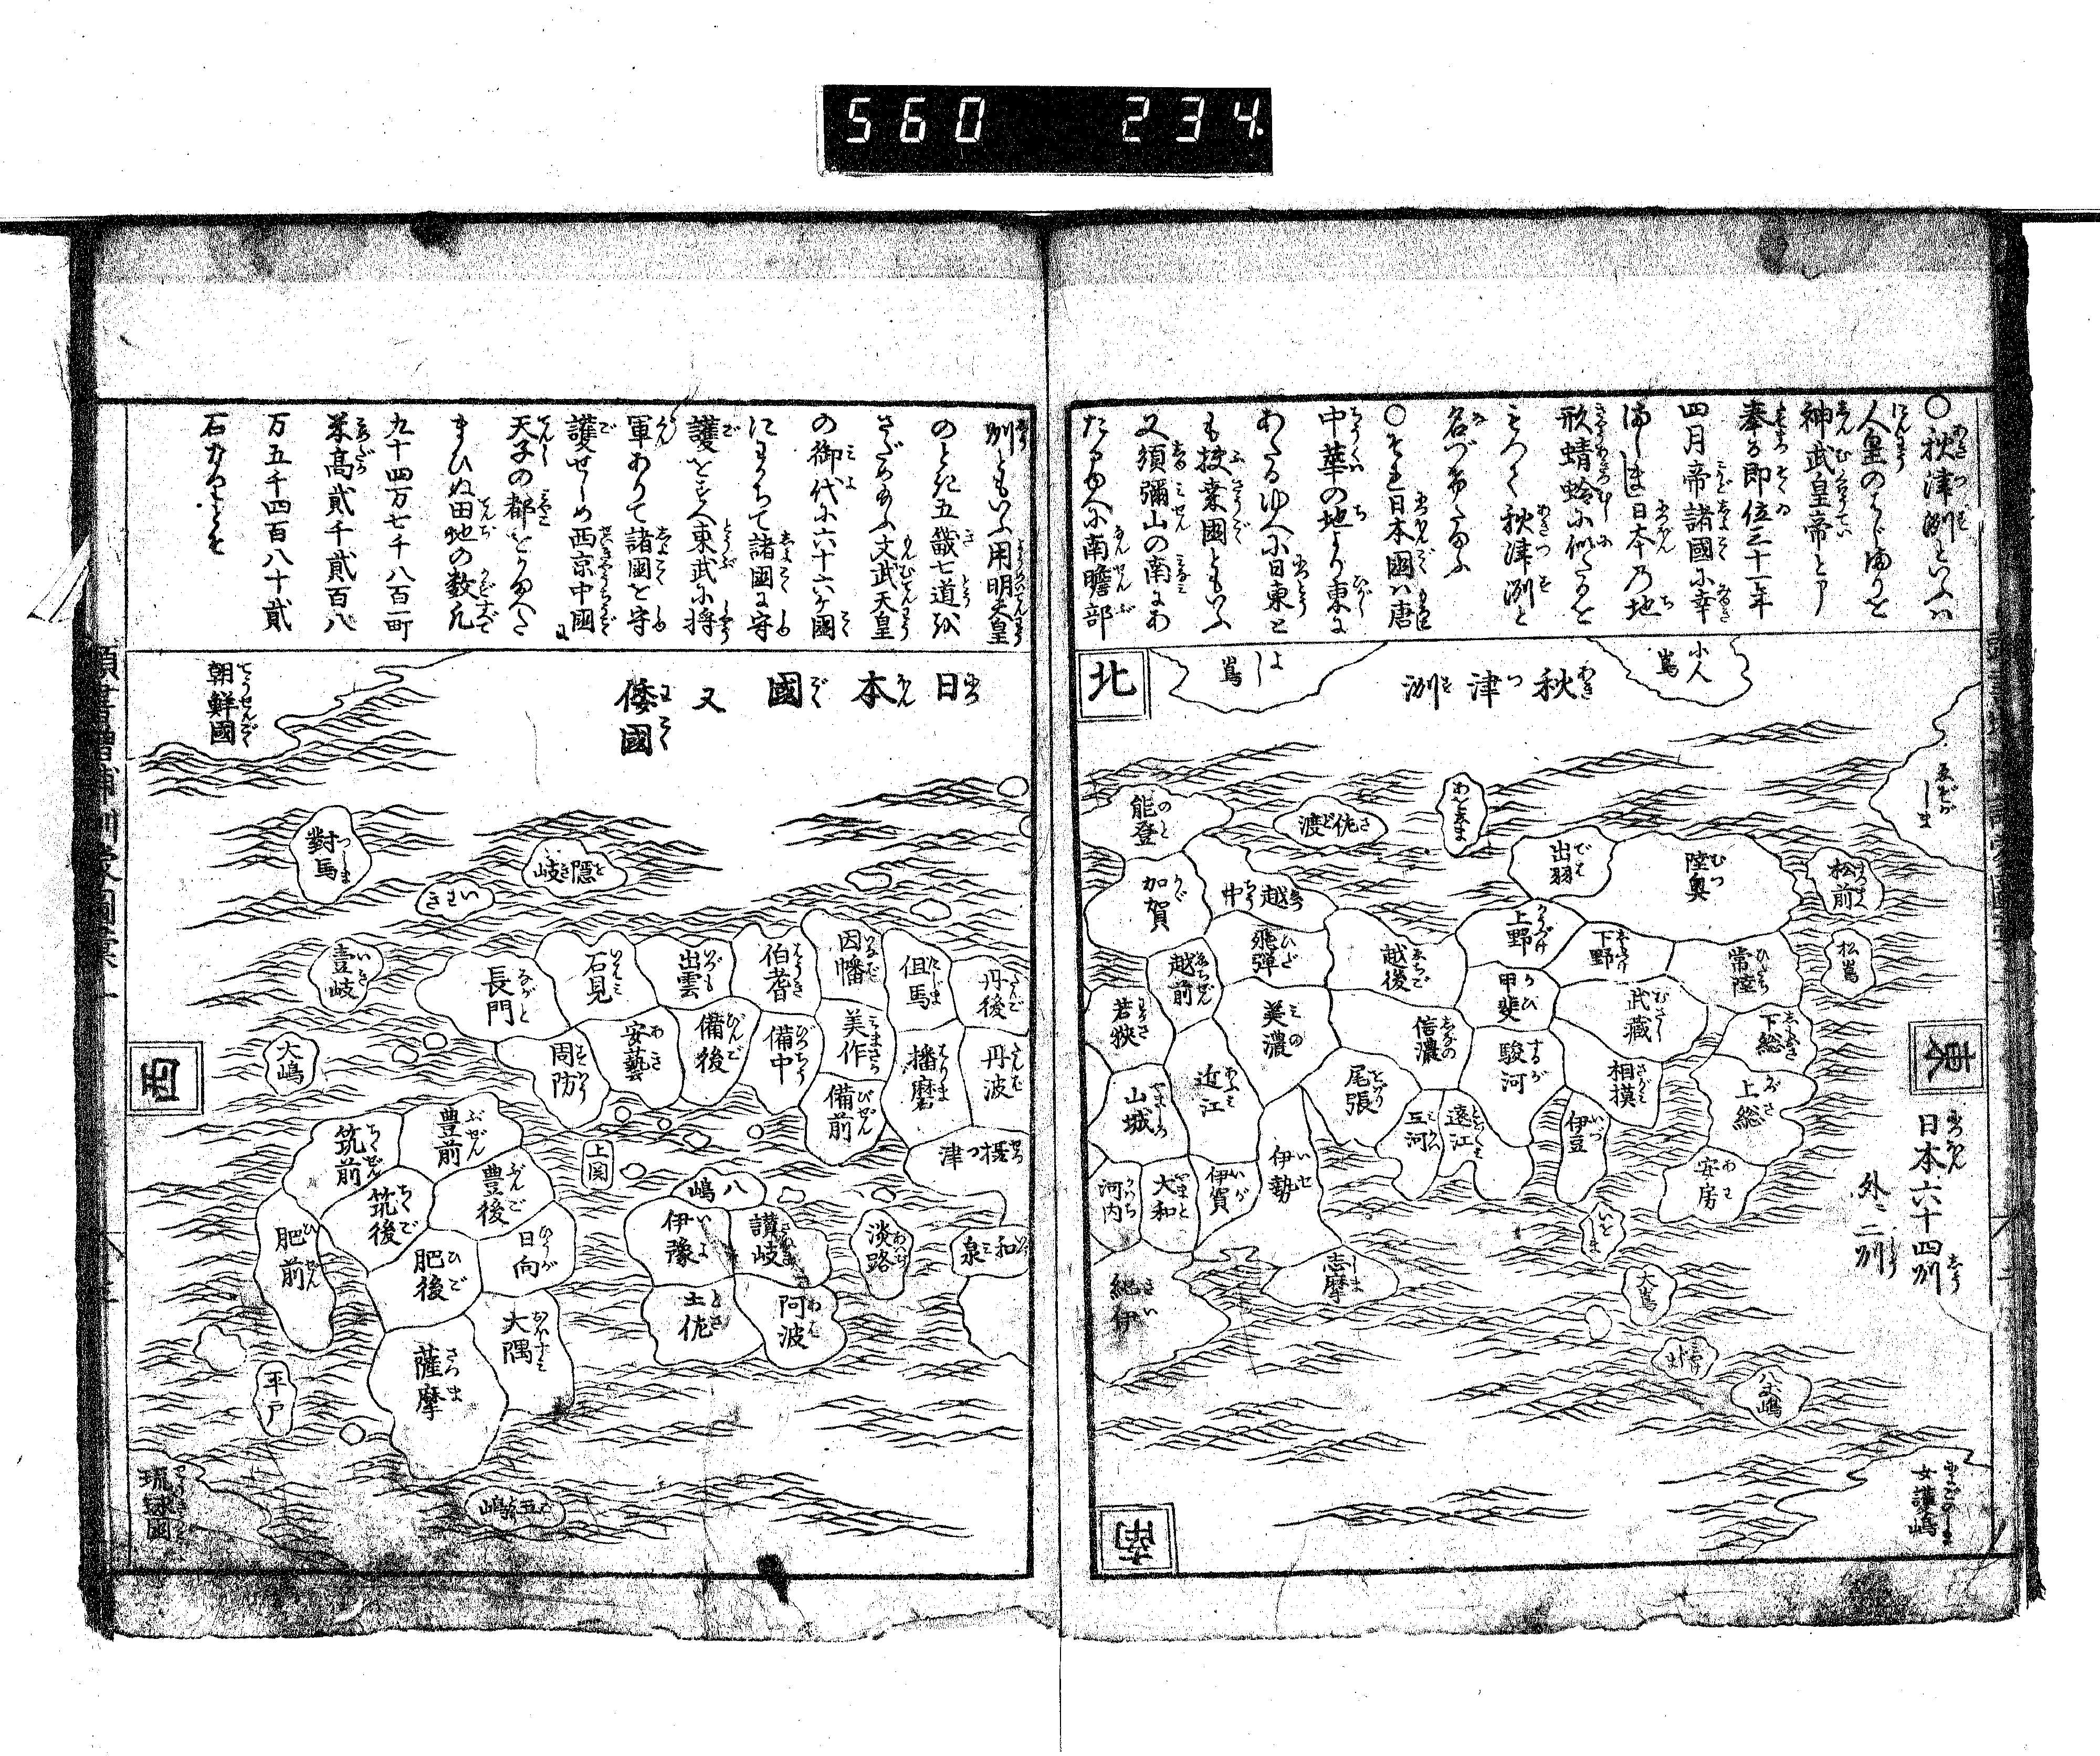 560 234.
○秋津洲といふハ
人皇のはじめりを
神武皇帝と申
奉る即位三十一年
四月帝諸國に幸
ましまし日本乃地
形蜻蛉に似たるを
もつて秋津洲と
名づけたまふ
○それ日本國ハ唐
中華の地より東に
あたるゆへに日東と
も扶桑國ともいふ
又須彌山の南にあ
たるゆへに南瞻部
洲ともいふ用明天皇
のとき五畿七道を
さだめたまふ文武天皇
の御代に六十六ケ國
にわかちて諸國に守
護をそへ東武に將
軍ありて諸國を守
護せしめ西京中國に
天子の都をかまへた
まひぬ田地の数凡
九十四万七千八百町
米高貳千貳百八
万五千四百八十貳
石なりとぞ
秋津洲
小人嶌
北
東
南
西
日本六十四州
外ニ二州
陸奥
出羽
松前
松嶌
佐渡
能登
加賀
越中
越前
越後
飛彈
上野
下野
常陸
甲斐
武藏
下総
上総
安房
相摸
伊豆
駿河
遠江
三河
尾張
信濃
美濃
近江
若狹
山城
河内
大和
伊賀
伊勢
志摩
紀伊
大嶌
八丈嶋
女護嶋
日本國
又
倭國
朝鮮國
對馬
隠岐
壹岐
大嶋
丹後
丹波
但馬
因幡
伯耆
出雲
石見
長門
周防
安藝
備後
備中
美作
備前
播磨
摂津
和泉
淡路
八嶋
上関
讃岐
伊豫
阿波
土佐
豊前
豊後
筑前
筑後
肥前
肥後
日向
大隅
薩摩
平戸
五嶋
琉球國